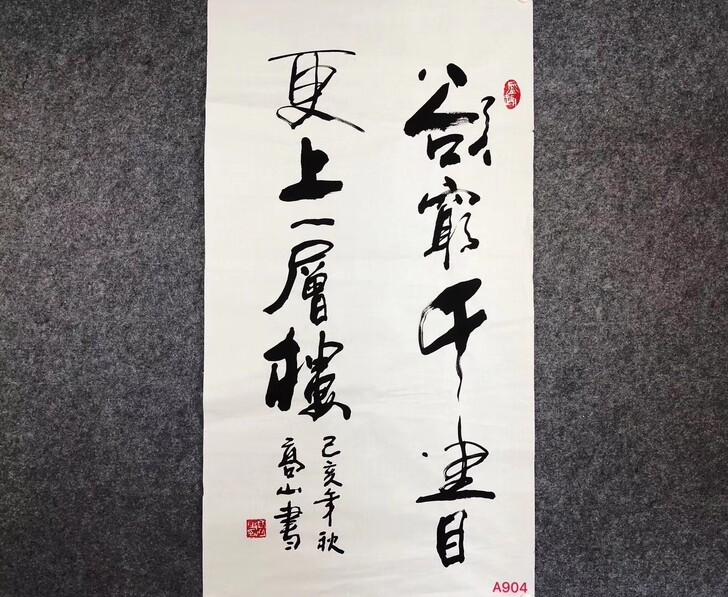 欲窮千里目
更上一層樓
己亥年秋
高山書
A904